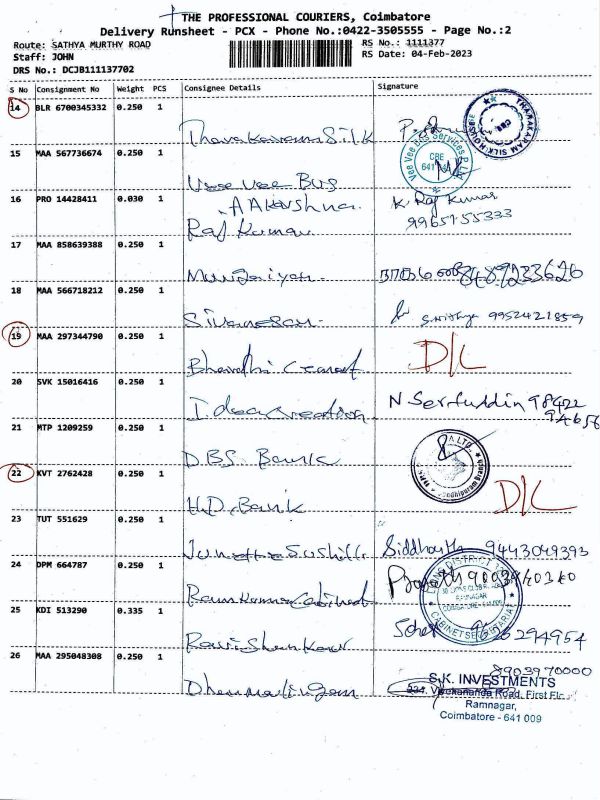 THE PROFESSIONAL COURIERS, Coimbatore
Delivery Runsheet - PCX - Phone No.:0422-3505555 - Page No.:2
Route: SATHYA MURTHY ROAD
RS No.: 1111377
Staff: JOHN
RS Date: 04-Feb-2023
DRS No.: DCJB111137702
S No Consignment No Weight PCS Consignee Details Signature
14 BLR 6700345332 0.250 1
Silk
THARAKARAM SILK HOUSE
CBE
15 MAA 567736674 0.250 1
Vee Vee Bus
Vee Vee Bus Services P Ltd
CBE
16 PRO 14428411 0.030 1
Raj Kumar
K. Raj Kumar
9965155333
17 MAA 858639388 0.250 1
Murugaiyan
8489233626
18 MAA 566718212 0.250 1
Sivanesan
9952421859
19 MAA 297344790 0.250 1
Bharathi Cement
D/L
20 SVK 15016416 0.250 1
Idea creation
N Serfuddin 98422
94656
21 MTP 1209259 0.250 1
D.B.S Bank
22 KVT 2762428 0.250 1
H.D. Bank
D/L
23 TUT 551629 0.250 1
Sushill
Siddharth 9443049393
24 DPM 664787 0.250 1
Ramkumar
CABINET SECRETARIAT
25 KDI 513290 0.335 1
Ravi Shankar
294954
26 MAA 295048308 0.250 1
Dharmalingam
8903970000
S.K. INVESTMENTS
Vivekananda Road, First Flr.
Ramnagar,
Coimbatore - 641 009